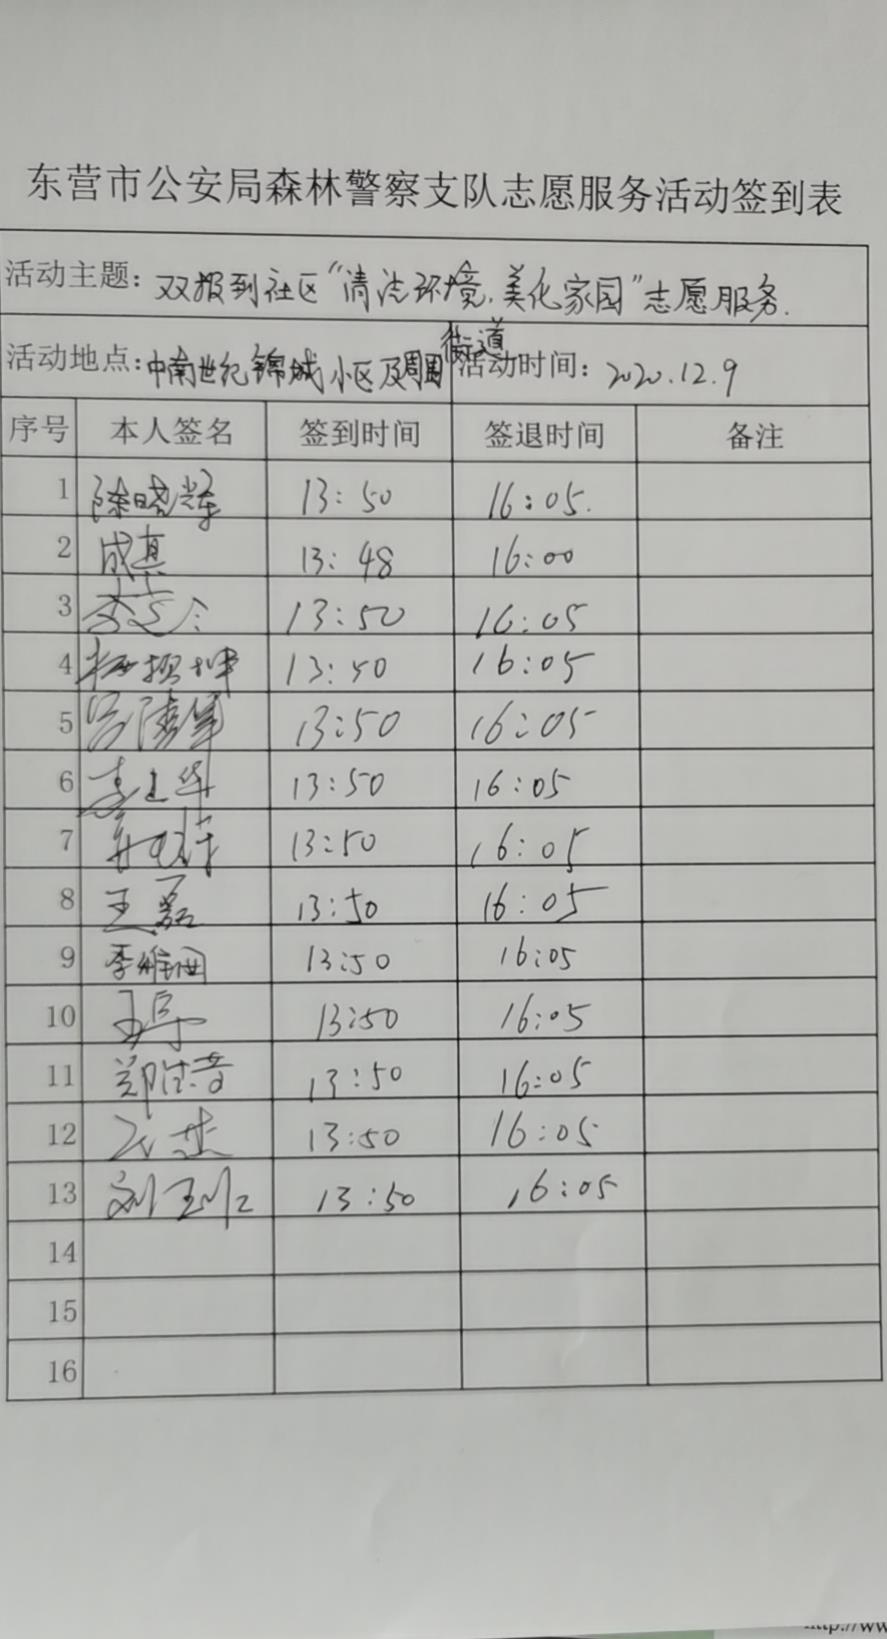 东营市公安局森林警察支队志愿服务活动签到表
活动主题：双报到社区“清洁环境，美化家园”志愿服务.
活动地点：中南世纪锦城小区及周围街道 活动时间：2020.12.9
序号 本人签名 签到时间 签退时间 备注
1 陈晓辉 13：50 16：05.
2 成真 13：48 16：00
3 13：50 16：05
4 13：50 16：05
5 13：50 16：05
6 李建华 13：50 16：05
7 13：50 16：05
8 王磊 13：50 16：05
9 李维国 13：50 16：05
10 13：50 16：05
11 13：50 16：05
12 13：50 16：05
13 13：50 16：05
14
15
16
http://ww